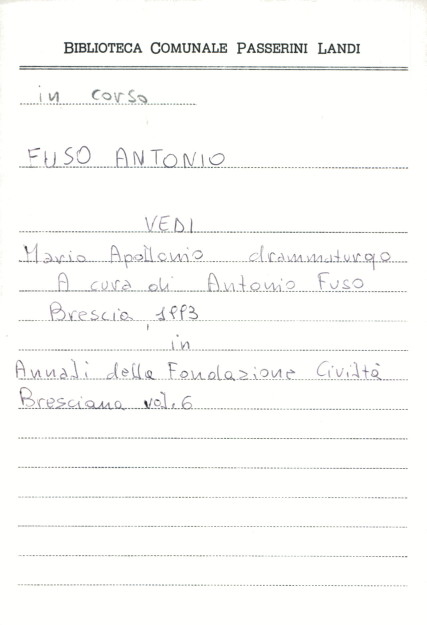 BIBLIOTECA COMUNALE PASSERINI LANDI
in corso
FUSO ANTONIO
VEDI
Mario Apollonio drammaturgo
A cura di Antonio Fuso
Brescia, 1993
in
Annali della Fondazione Civiltà
Bresciana vol. 6